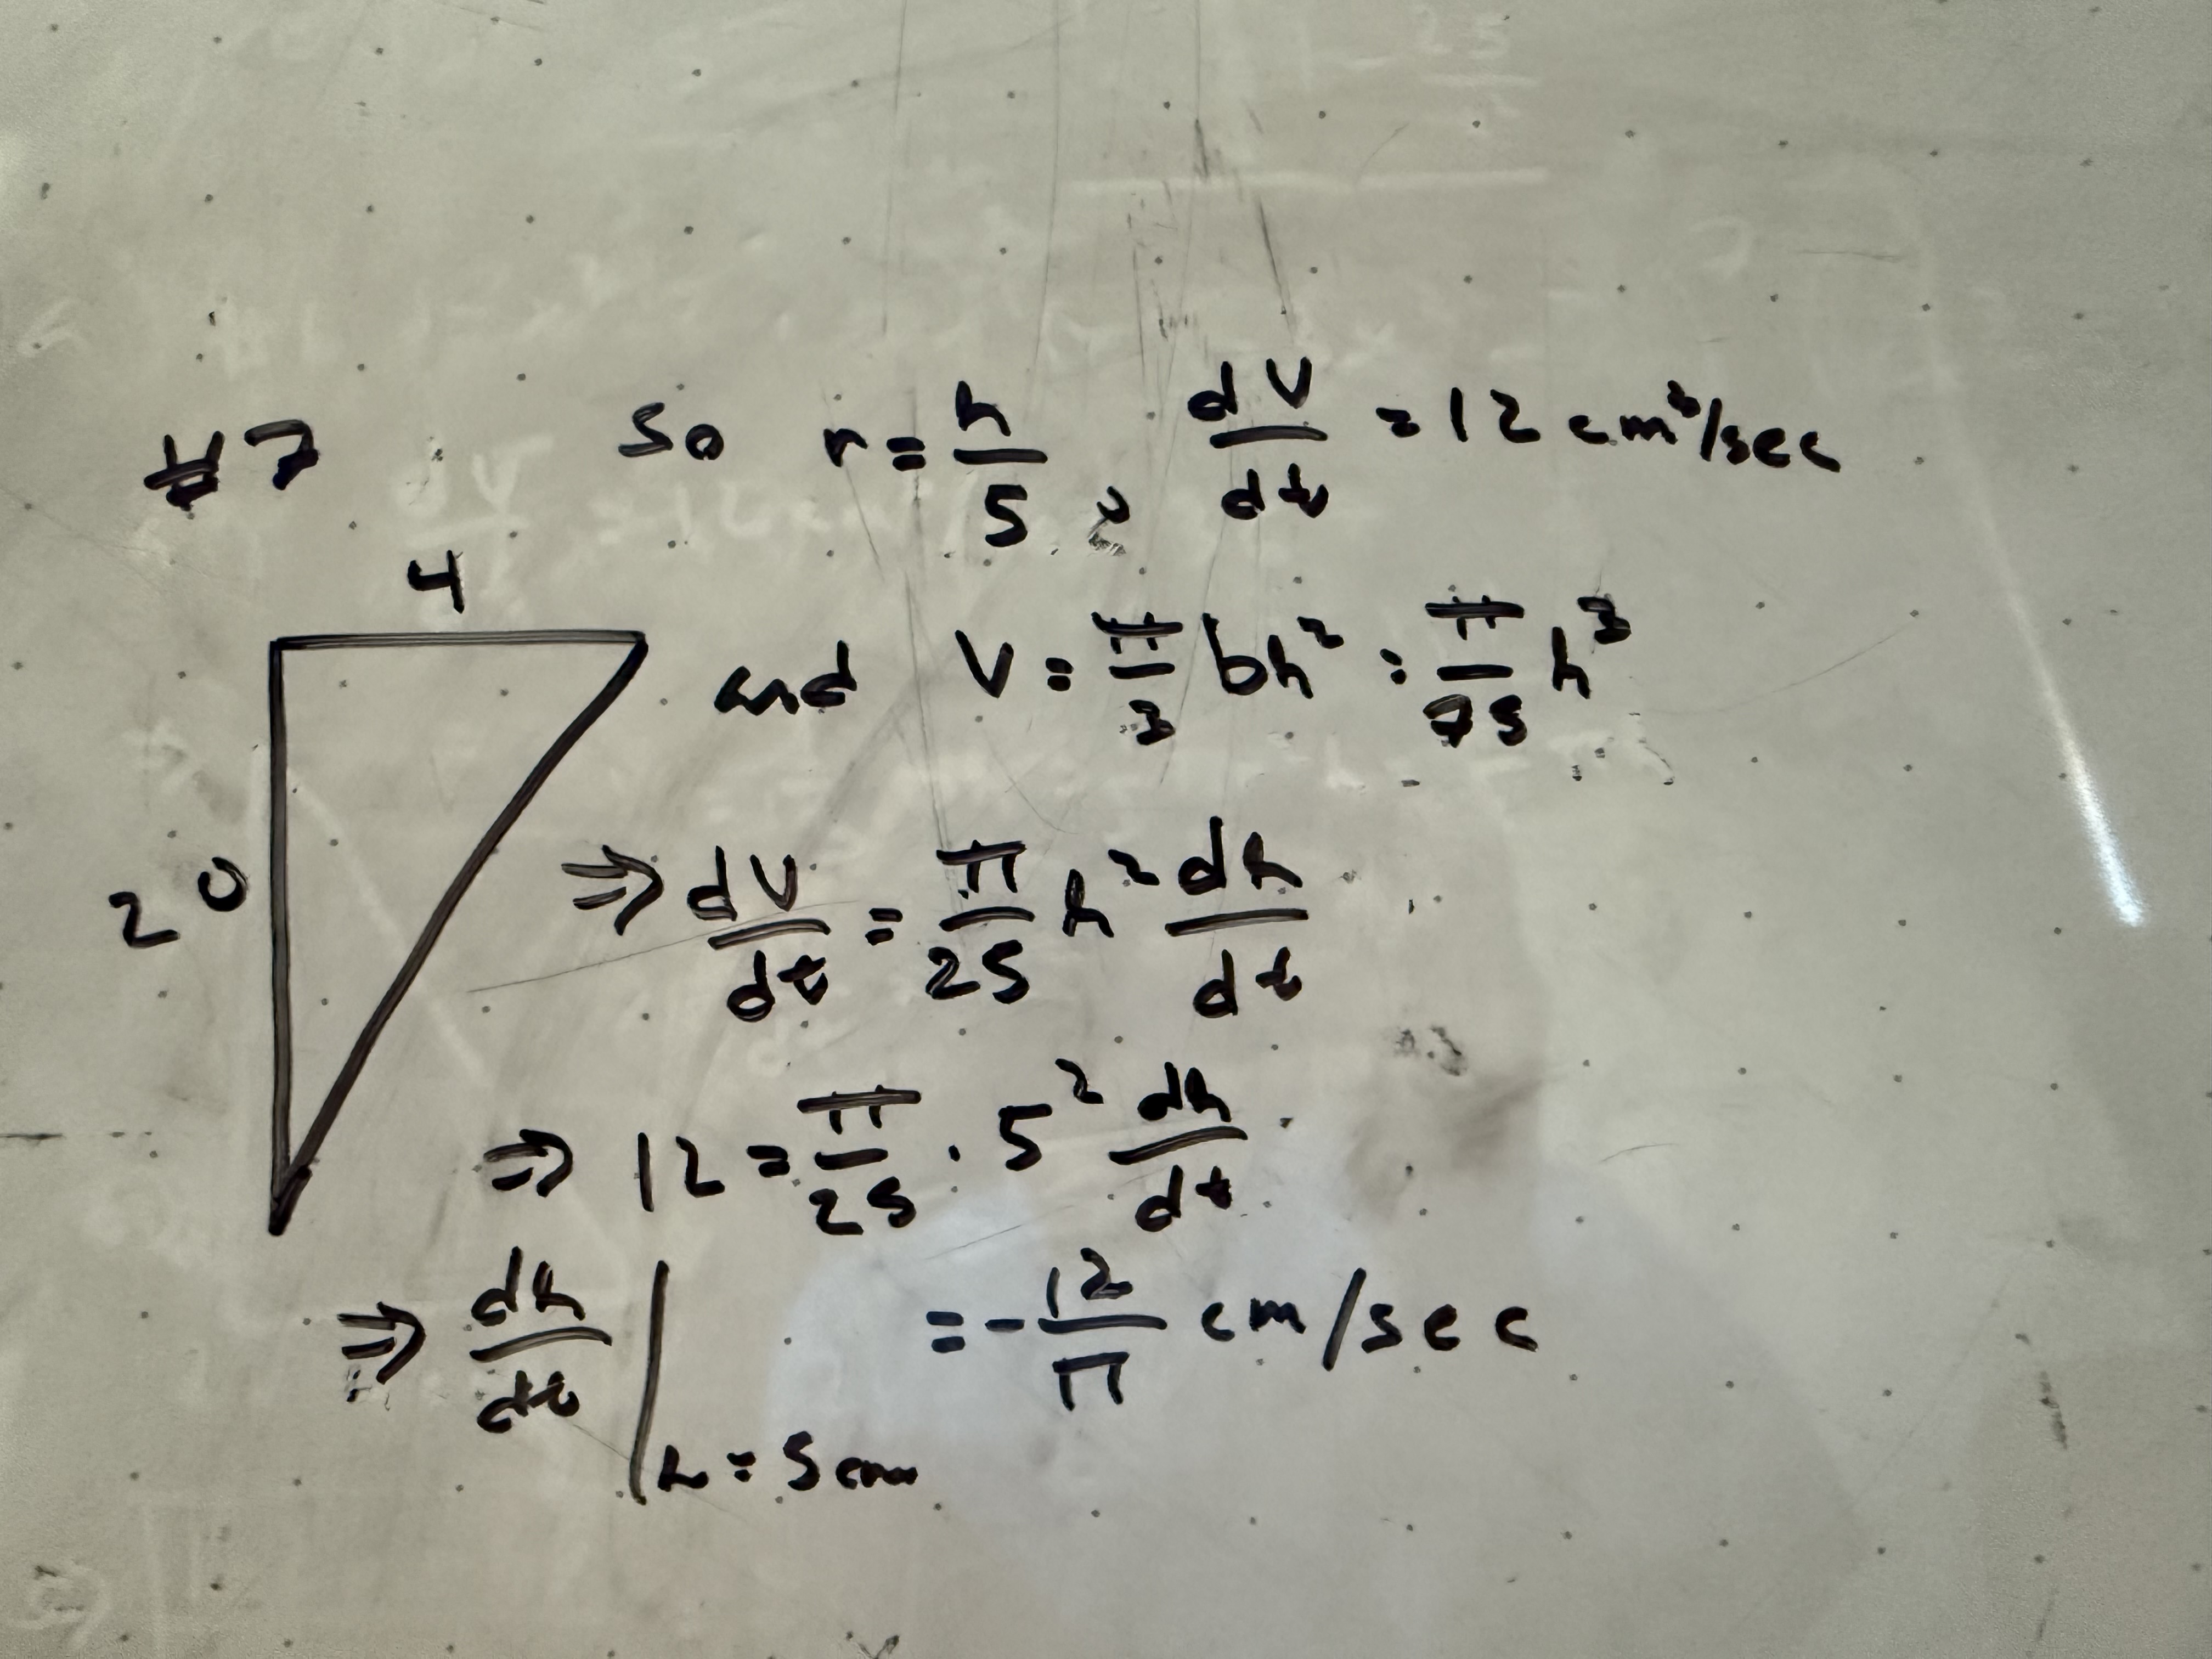 #7 So r = h/5, dV/dt = 12 cm³/sec
4
and V = π/3 bh² = π/75 h³
20
⇒ dV/dt = π/25 h² dh/dt
⇒ 12 = π/25 · 5² dh/dt
⇒ dh/dt | h = 5cm = -12/π cm/sec